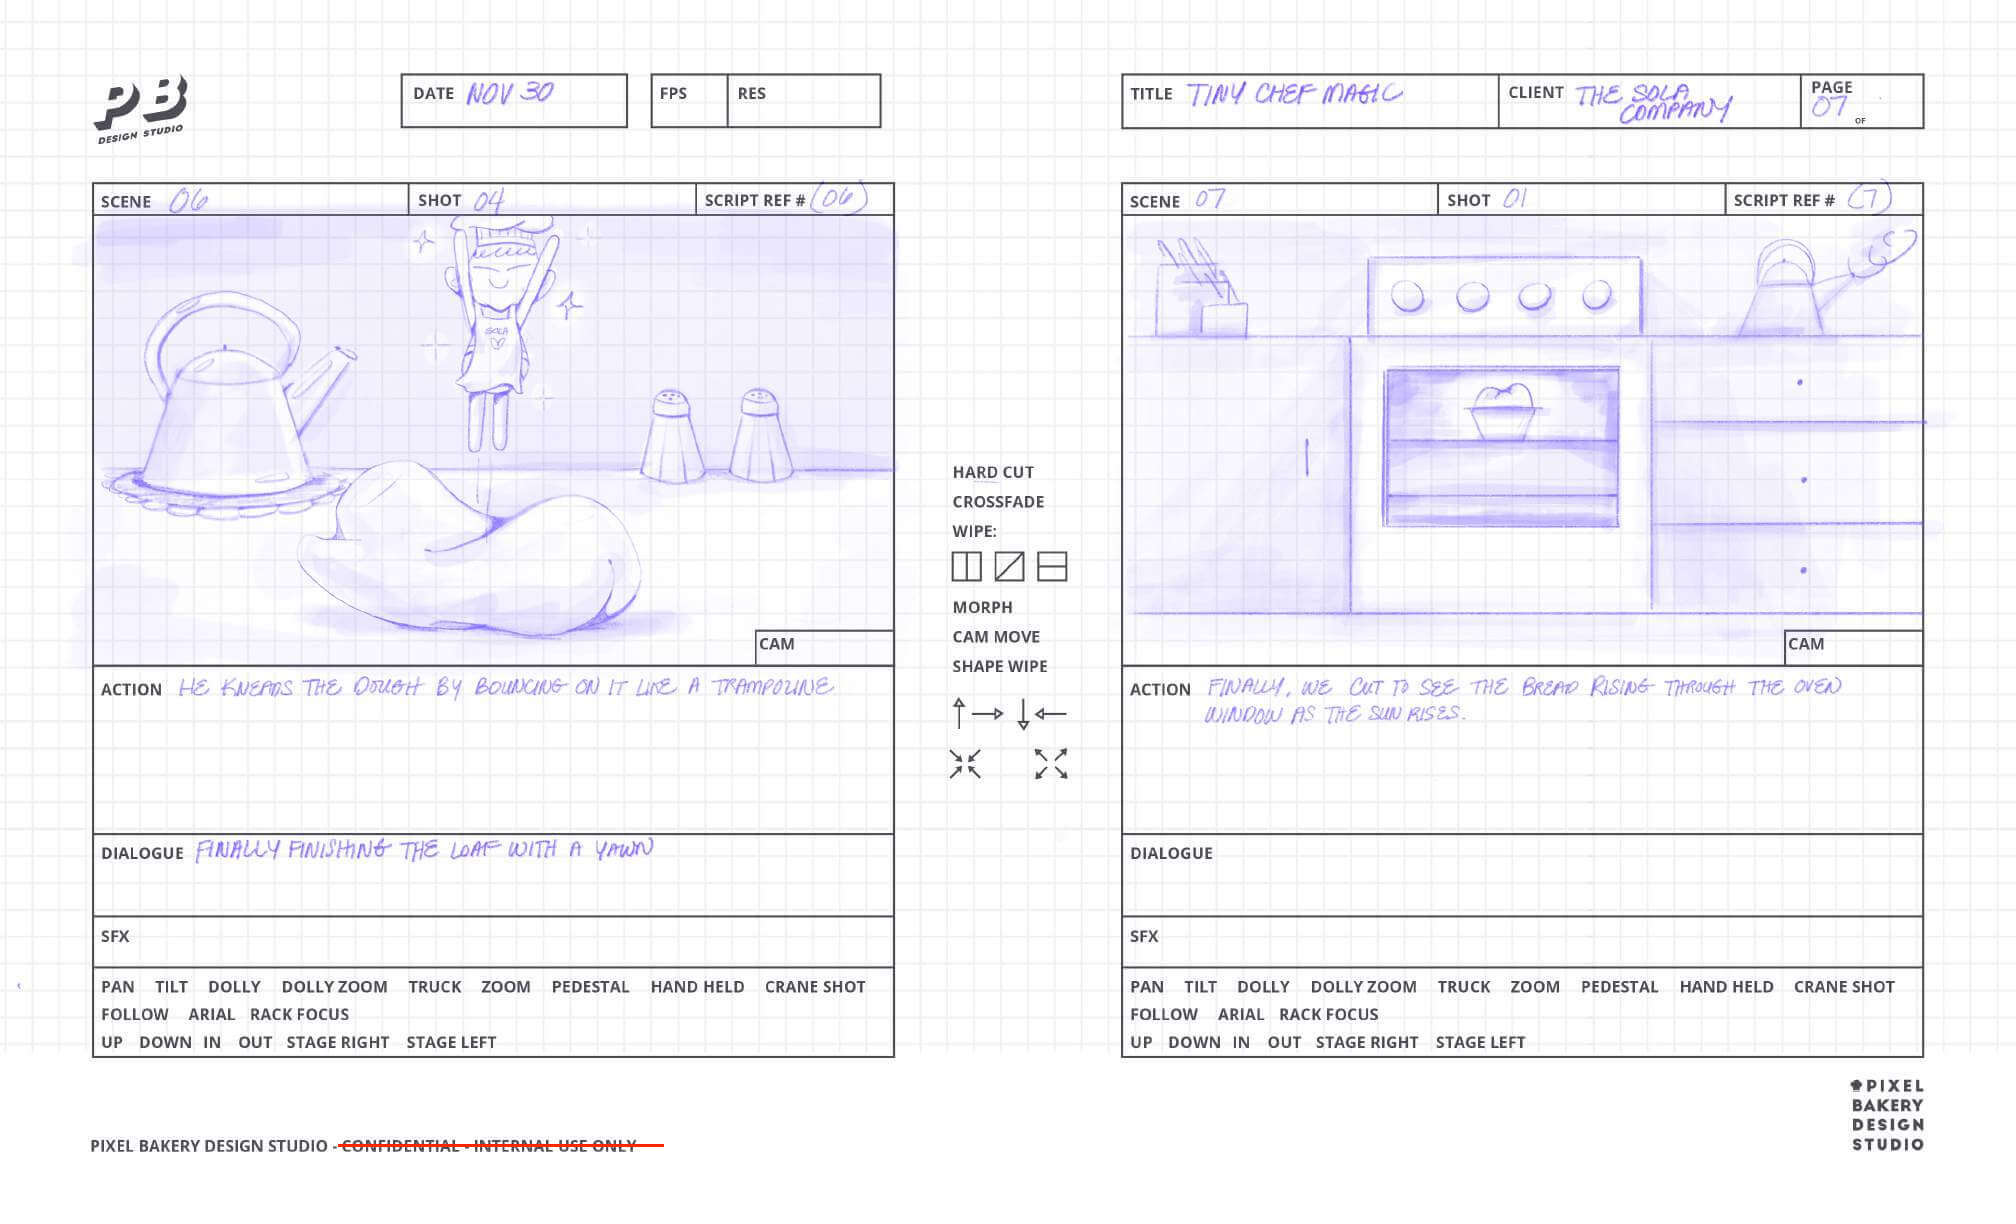 PB
DESIGN STUDIO
DATE NOV 30
FPS
RES
TITLE TINY CHEF MAGIC
CLIENT THE SOLA
COMPANY
PAGE
07
OF
SCENE 06
SHOT 04
SCRIPT REF # (06)
SOLA
CAM
ACTION HE KNEADS THE DOUGH BY BOUNCING ON IT LIKE A TRAMPOLINE
DIALOGUE FINALLY FINISHING THE LOAF WITH A YAWN
SFX
PAN TILT DOLLY DOLLY ZOOM TRUCK ZOOM PEDESTAL HAND HELD CRANE SHOT
FOLLOW ARIAL RACK FOCUS
UP DOWN IN OUT STAGE RIGHT STAGE LEFT
HARD CUT
CROSSFADE
WIPE:
MORPH
CAM MOVE
SHAPE WIPE
SCENE 07
SHOT 01
SCRIPT REF # (7)
CAM
ACTION FINALLY, WE CUT TO SEE THE BREAD RISING THROUGH THE OVEN
WINDOW AS THE SUN RISES.
DIALOGUE
SFX
PAN TILT DOLLY DOLLY ZOOM TRUCK ZOOM PEDESTAL HAND HELD CRANE SHOT
FOLLOW ARIAL RACK FOCUS
UP DOWN IN OUT STAGE RIGHT STAGE LEFT
PIXEL BAKERY DESIGN STUDIO - CONFIDENTIAL - INTERNAL USE ONLY
PIXEL
BAKERY
DESIGN
STUDIO